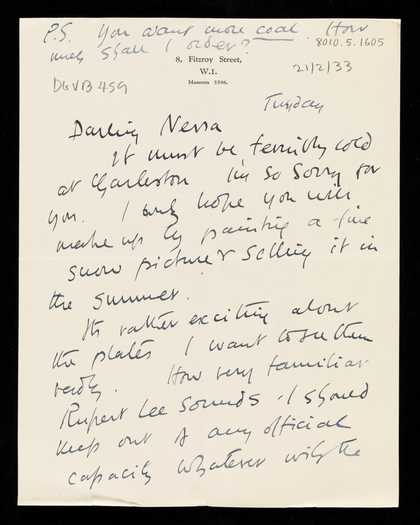 P.S. You want more coal. How
much shall I order?
8010.5.1605
8, Fitzroy Street,
W.1.
Museum
21/2/33
DGVB 459
Tuesday
Darling Nessa
It must be terribly cold
at Charleston I'm so sorry for
you. I only hope you will
make up by painting a fine
snow picture & selling it in
the summer.
Its rather exciting about
the plates I want to see them
badly. How very familiar
Rupert Lee sounds. I should
keep out of any official
capacity whatever with the